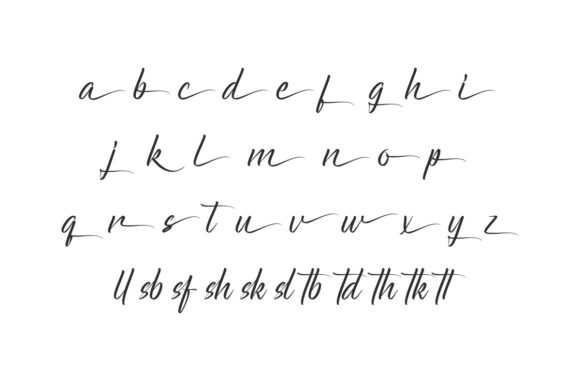 a b c d e f g h i
j k l m n o p
q r s t u v w x y z
ll sb sf sh sk sl tb td th tk tt